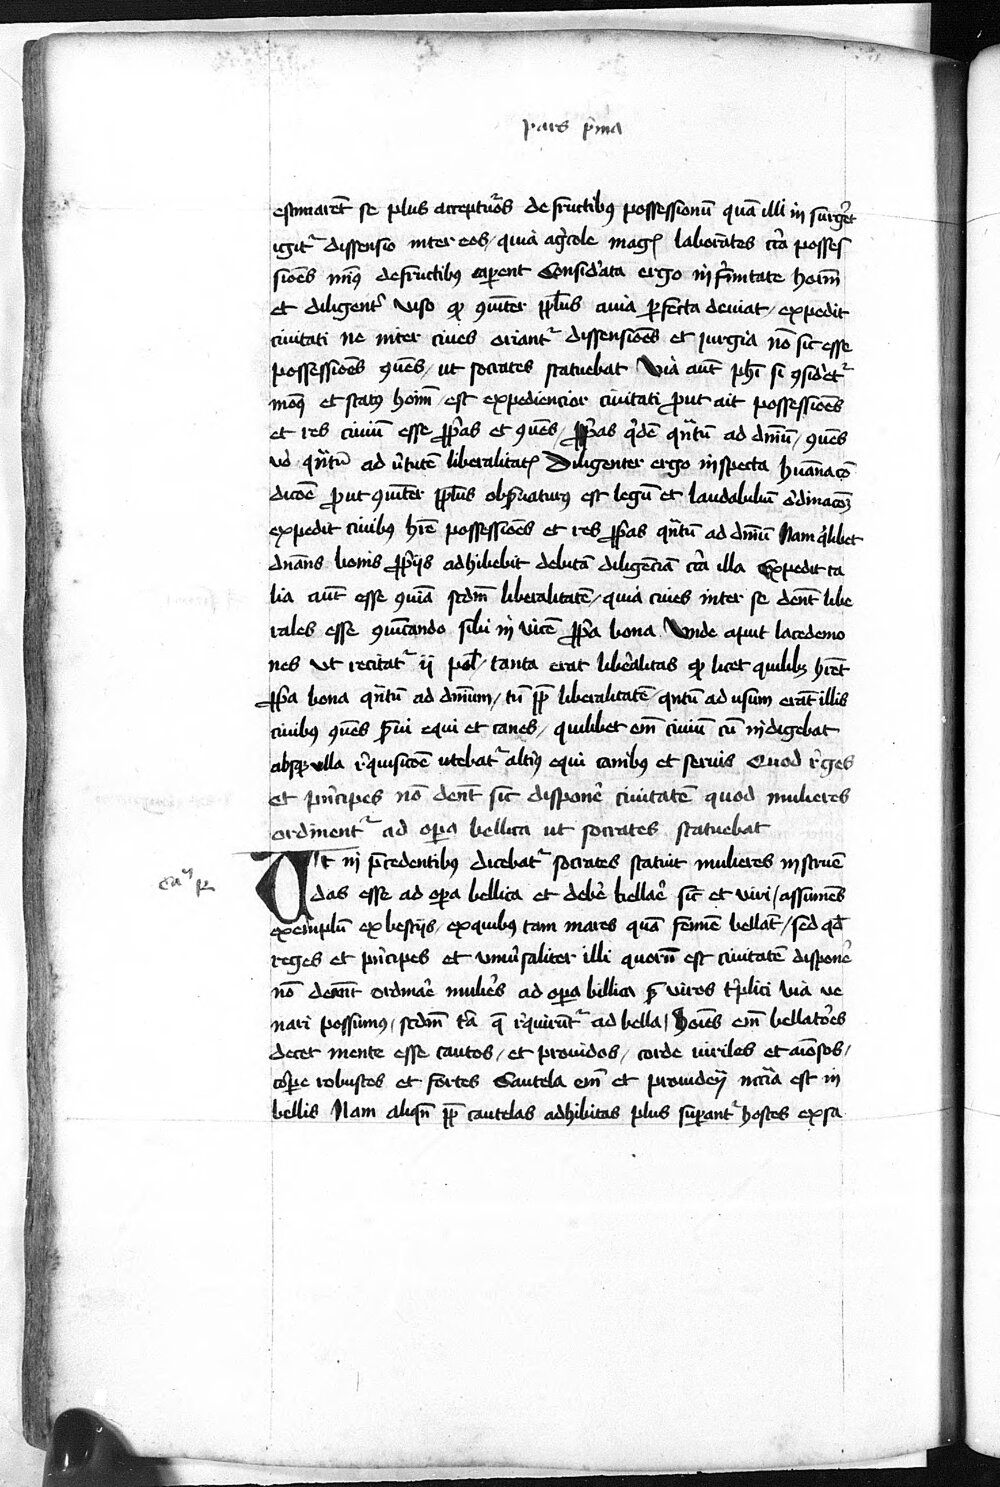 pars p̄ma
estimarēt se plus accepturos de fructibus possessionū quā illi in surgeret
igitᷣ dissensio inter eos / quia agricole magꝭ laborātes circa posses
siōēs minꝰ de fructibus caperent Considerata ergo infirmitate hoīm
et diligentᷣ viso qꝫ cōiter ppl̄us a via perfecta deviat / expedit
civitati ne inter cives oriantᷣ dissensiōēs et jurgia nō sic esse
possessiōēs ꝯmūes / ut socrates statuebat Via aūt ph̄i si ꝯsideretᷣ
modꝰ et statꝰ hoīm / est expediencior civitati prout ait possessiōēs
et res civiū esse ꝓprias et ꝯmūes / ꝓprias qͥdē qͣntū ad dn̄iū / ꝯmūes
vͦ qͣntū ad v̓tutē liberalitatꝭ Diligenter ergo inspecta humana cō
dic̄oē prout cōiter ppl̄us observaturꝰ est legū et laudabiliū ordinac̄onē
expedit civibus hr̄e possessiōēs et res ꝓprias qͣntū ad dn̄iū Nam qͥlibet
dn̄ans bonis ꝓpriis adhibebit debitā diligēciā circa illa Expedit ta
lia aūt esse ꝯmūia scdm̄ liberalitatē / quia cives inter se dēnt libe
rales esse ꝯmūicando sibi in vicē ꝓpria bona Unde apud lacedemo
nes ut recitatᷣ ij pol̄ / tanta erat liberalitas qꝫ licet quilibꝫ hr̄et
ꝓpria bona qͣntū ad dn̄ium / tn̄ ꝓpter liberalitatē qntū ad usum erāt illis
civibus ꝯmūes servi equi et canes / quilibet em̄ civiū cū indigebat
absqꝫ ulla requisic̄oē utebatᷣ alterius equi canibus et servis Quod reges
et principes nō dēnt sic disponer̄ civitatē quod mulieres
ordinentᷣ ad opera bellica ut socrates statuebat
Ut in precedentibus dicebatᷣ socrates statuit mulieres instruē
das esse ad opera bellica et debere bellar̄ sic et viri / assumēs
exemplū ex bestiis / ex quibus tam mares quā femine bellāt / sed qd̄
reges et principes et universaliter illi quorū est civitatē disponer̄
nō debent ordinar̄ mulieres ad opera billica sed viros triplici via ve
nari possumus / scdm̄ tria que requiruntᷣ ad bella / Hoīes em̄ bellatores
decet mente esse cautos / et providos / corde viriles et aīosos /
corpore robustos et fortes Cautela em̄ et providencia necessaria est in
bellis Nam aliqn̄ ꝓpter cautelas adhibitas plus superantᷣ hostes ex sa